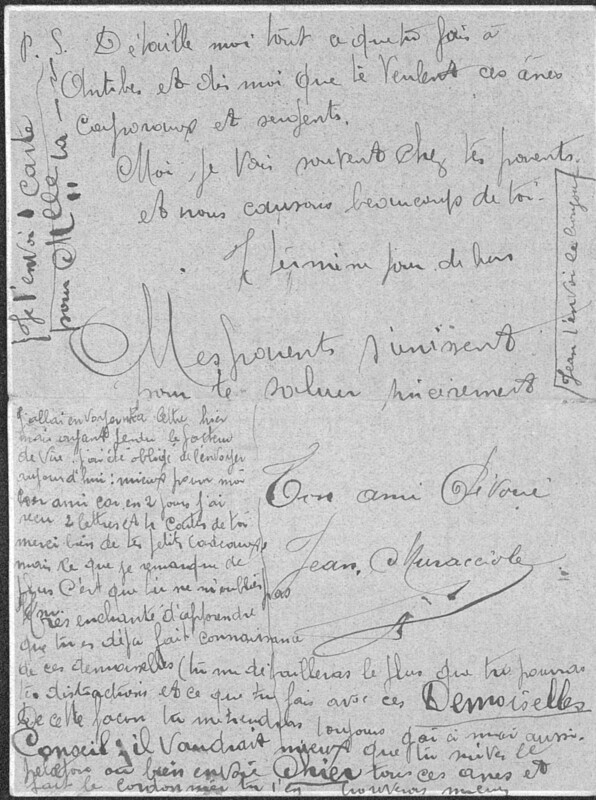 P. S. Détaille moi tout ce que tu fais à
Antibes et dis moi que te veulent ces ânes
Caporaux et sergents.
Moi, je vais souvent chez tes parents.
et nous causons beaucoup de toi.
Je termine pour de bon
Mes parents s'unissent
pour te saluer sincèrement
Ton ami Dévoué
Jean Muracciole
Je t'envoi 1 carte
pour Melle la
Jean t'envoi le
J'allai envoyer ma lettre hier
mais ayant perdu le facteur
de vue j'ai été obligé de l'envoyer
aujourd'hui; mieux pour moi
cher ami car en 2 jours j'ai
reçu 2 lettres et 2 cartes de toi
merci bien de tes petits cadeaux
mais ce que je remarque de
plus c'est que tu ne m'oublies pas
Très enchanté d'apprendre
que tu es déjà fait connaissance
de ces demoiselles (tu me détailleras le plus que tu pourras
tes distractions et ce que tu fais avec ces Demoiselles
De cette façon tu me rendras toujours gai à moi aussi.
Conseil; il vaudrait mieux que tu suives le
peloton ou bien envoie chier tous ces ânes et
fait le cordonnier tu t'en trouveras mieux